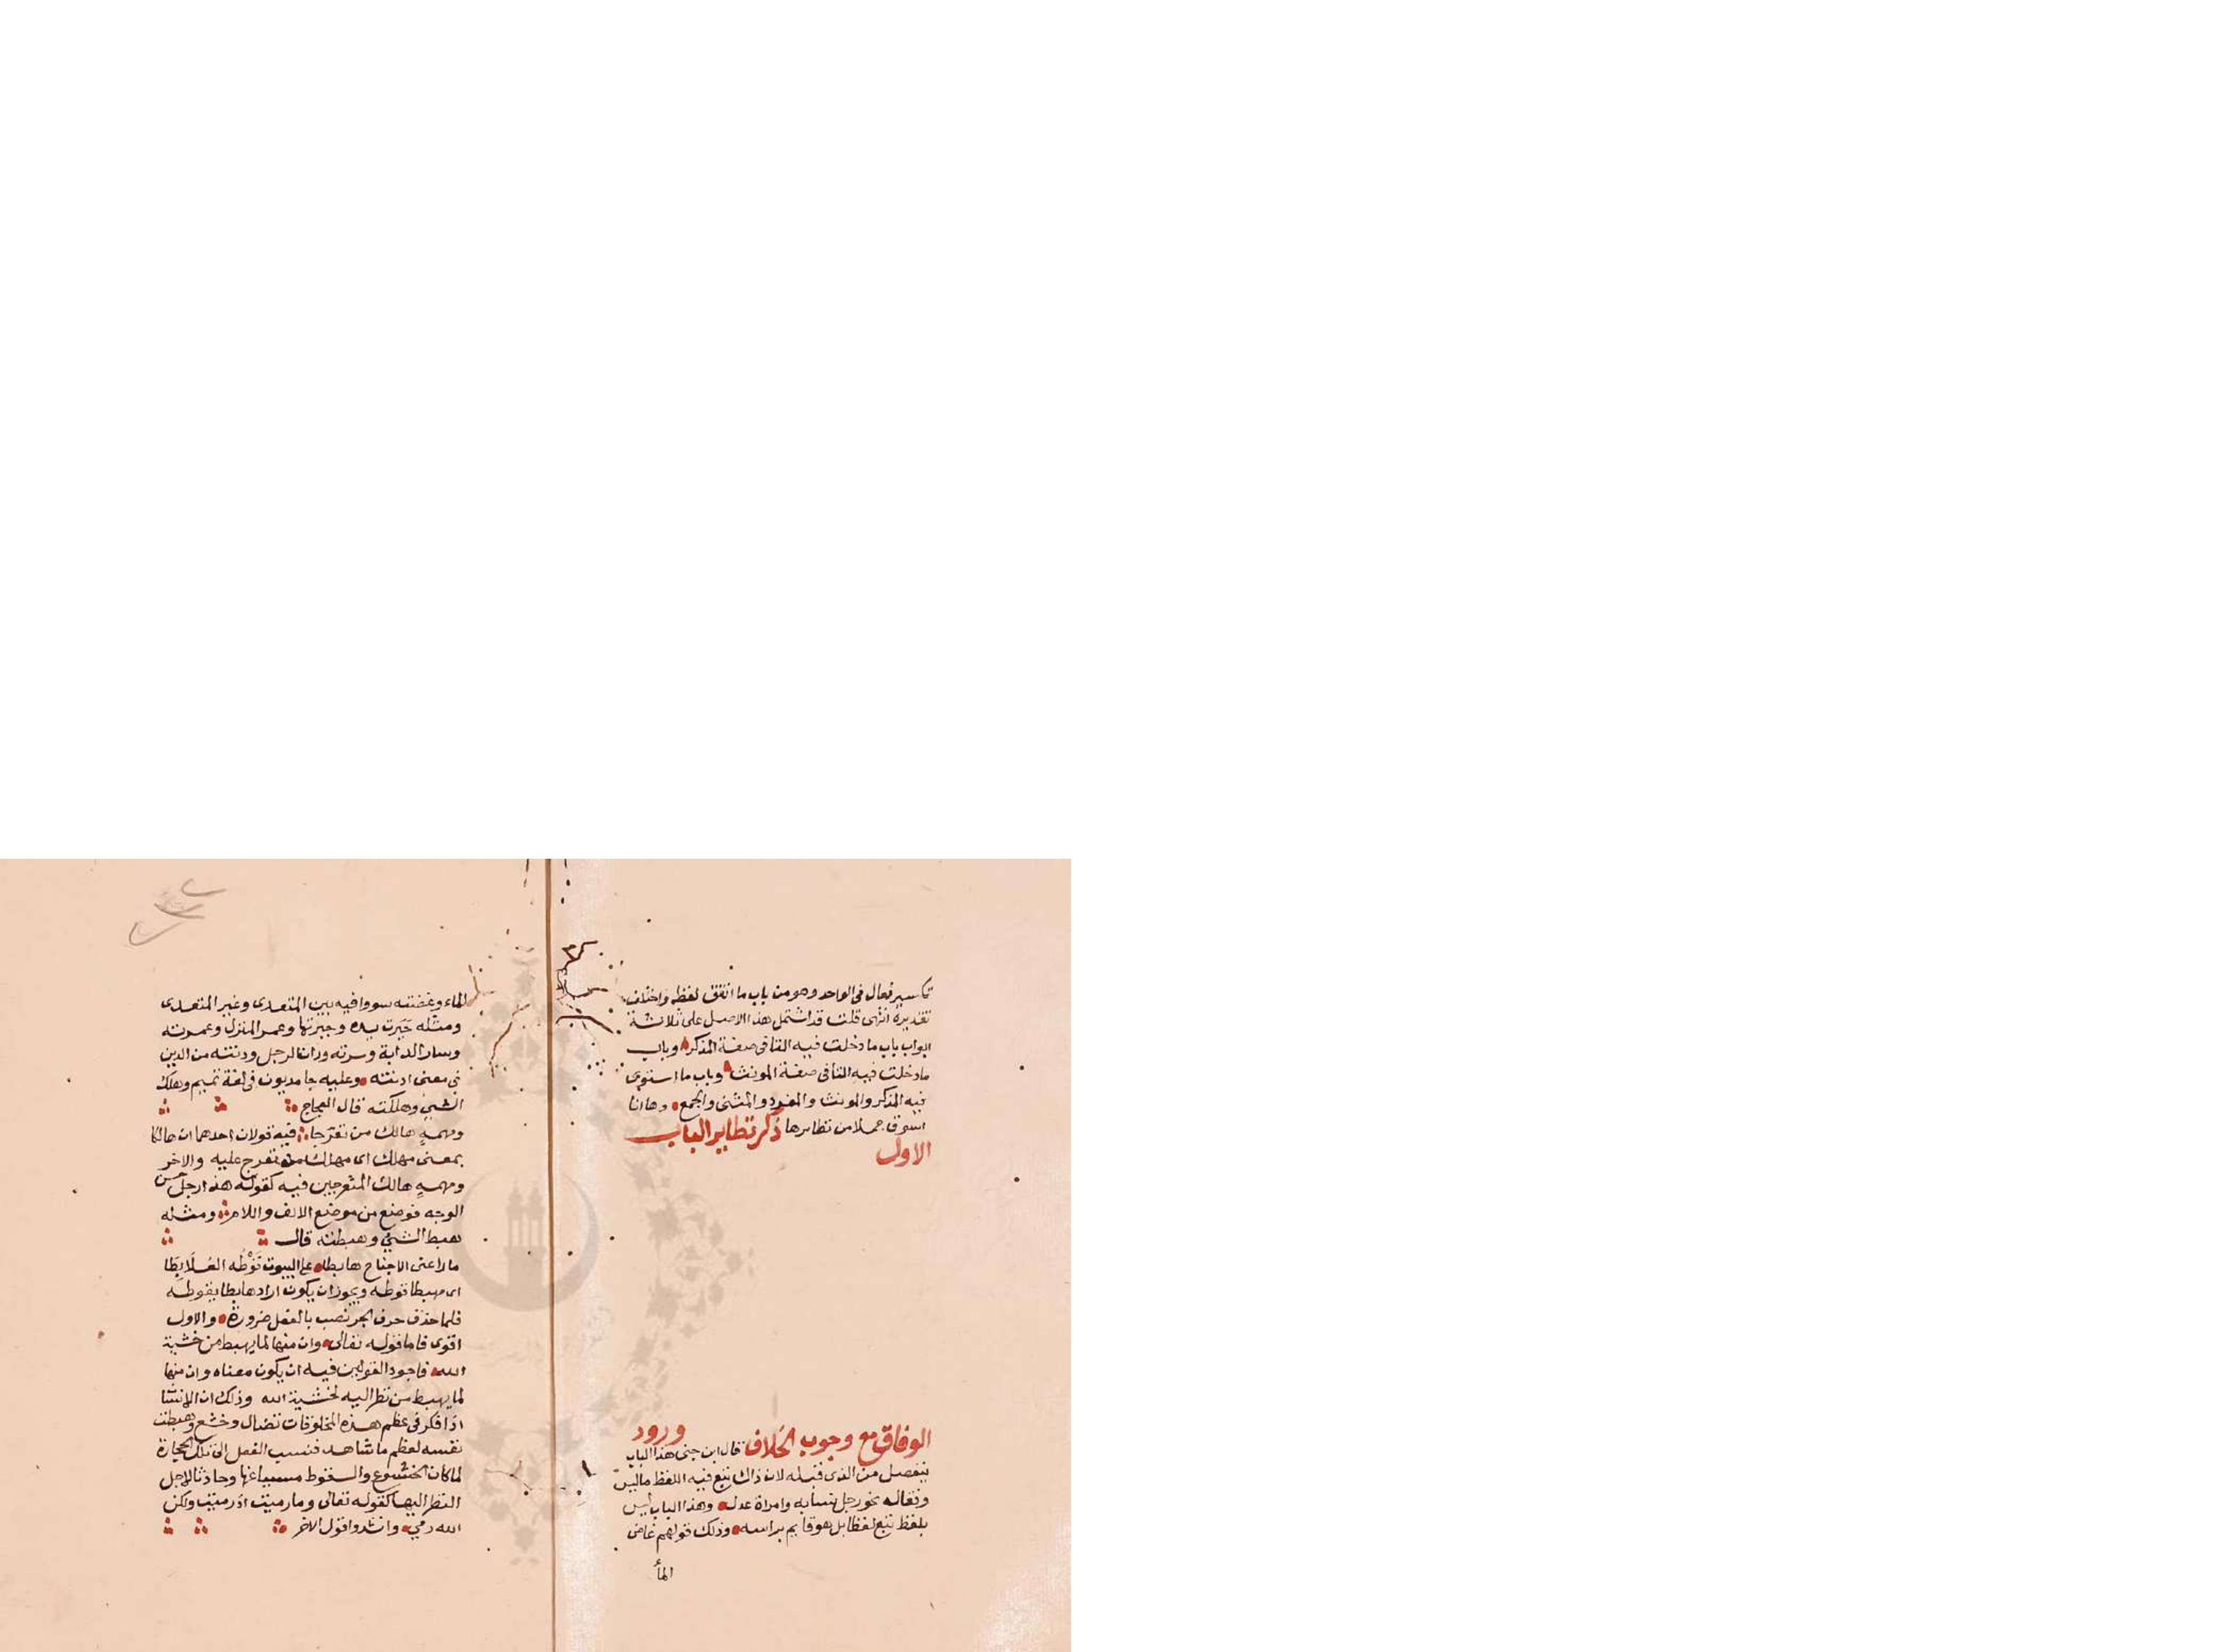 تكسير فعال في الواحد وهو من باب ما اتفق لفظه واختلف
تقديره انتهى قلت قد اشتمل هذا الاصل على ثلاثة
ابواب باب ما دخلت فيه التا في صفة المذكر وباب
ما دخلت فيه التا في صفة المونث وباب ما استوى
فيه المذكر والمونث والمفرد والمثنى والجمع وها انا
اسوق جملا من نظايرها ذكر نظاير الباب
الاول
ورود
الوفاق مع وجوب الخلاف قال ابن جنى هذا الباب
ينفصل من الذى قبله لان ذاك تبع فيه اللفظ ما ليس
وفقا له نحو رجل نسابه وامراة عدل وهذا الباب ليس
بلفظ تبع لفظا بل هو قايم براسه وذلك قولهم غاض
الما
الماء وغضته سووا فيه بين المتعدى وغير المتعدى
ومثله جبرت يده وجبرتها وعمر المنزل وعمرته
وسار الدابة وسرته ودان الرجل ودنته من الدين
في معنى ادنته وعليه جا مديون فى لغة تميم وهلك
الشيء وهلكته قال العجاج
ومهمه هالك من تعرجا فيه قولان احدهما ان هالكا
بمعنى مهلك اى مهالك من تعرج عليه والاخر
ومهمه هالك المتعرجين فيه كقولك هذا رجل حسن
الوجه فوضع من موضع الالف واللام ومثله
هبط الشيء وهبطته قال
ما راعنى الا جناح هابطا على البيوت قوطه العلابطا
اى مهبطا قوطه ويجوز ان يكون اراد هابطا بقوطه
فلما حذف حرف الجر نصب بالفعل ضرورة والاول
اقوى فاما قوله تعالى وان منها لما يهبط من خشية
الله فاجود القولين فيه ان يكون معناه وان منها
لما يهبط من نظر اليه لخشية الله وذلك ان الانسان
اذا فكر في عظم هذه المخلوقات تضال وخشع وهبطت
نفسه لعظم ما شاهد فنسب الفعل الى تلك الحجارة
لما كان الخشوع والسقوط مسببا عنها وحادثا لاجل
النظر اليها كقوله تعالى وما رميت اذ رميت ولكن
الله رمي وانشدوا قول الاخر